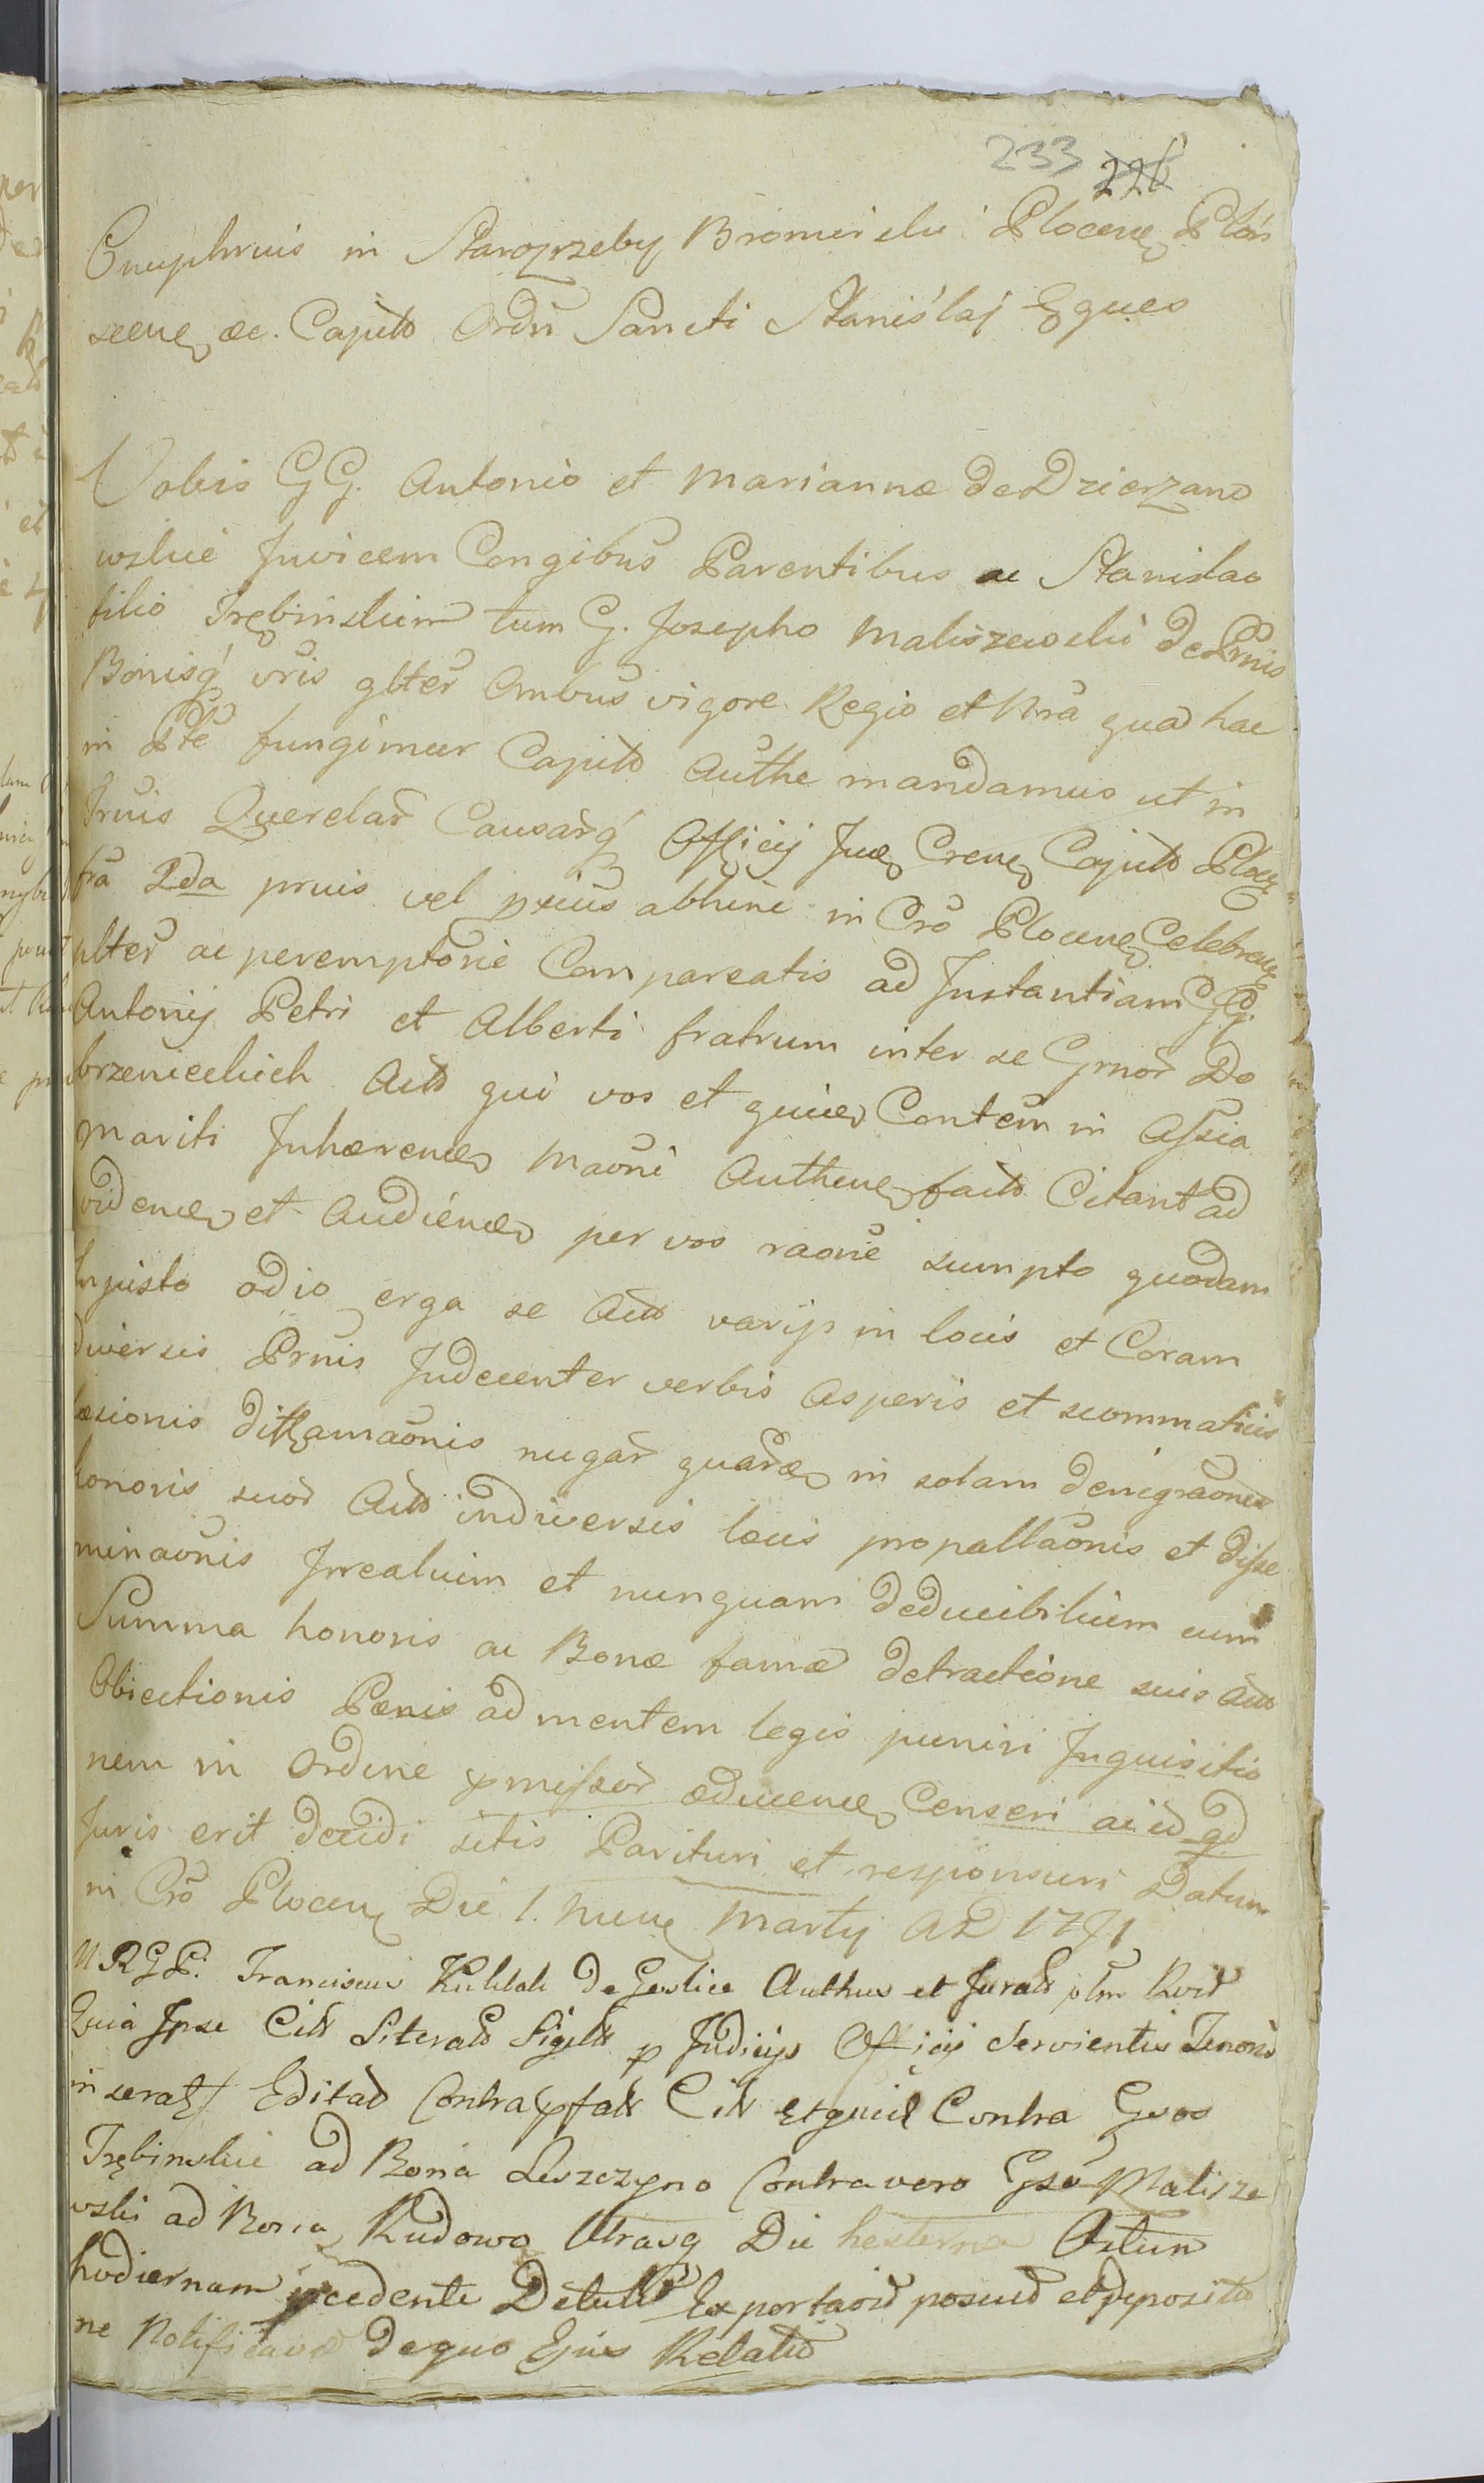 233 226
Onuphrius in Starozrzeby Bromirski Plocens Płon
scens &c. Capits Ordn Sancti Stanislaj Eques
Vobis GG. Antonio et Mariannæ de Dzierzano
wskie Juvicem Congibus Parentibus ac Stanislao
filio Trębinskim tum G. Josepho Maliszewski de Prnis
Bonisq vris glter Ombus vigore Regio et Nra qua hac
in Pte fungimur Capits Autthe mandamus ut in
Trnis Querelar Causarq Officij Jud Crens Capits Ploc
fra 2da prnis vel prius abhinc in Cro Plocens Celebrens
plter ac peremptorie Compareatis ad Instantiam GG.
Antonij Petri et Alberti fratrum inter se Grmor Do
brzenieckich Acts qui vos et quies Contem in Assia
mariti Inhærens Maoni Authens facts Citant ad
videns et Audiens per vos raone sumpto quodam
Injusto odio erga se Acts varijs in locis et Coram
diversis Prnis Indecenter verbis Asperis et scommaticis
læsionis diffamaonis nugar quare in solam denigraonem
honoris suor Acts in diversis locis propallaonis et disse
minaonis Irrealium et nunquam deducibilium cum
Summa honoris ac Bonæ famæ detractione suis Acts
Obiectionis Pænis ad mentem legis puniri Inquisitio
nem in Ordine pmissor educens Censeri ac id qd
Juris erit decidi sitis Parituri et responsuri Datum
in Cro Plocen Die 1. Mens Martij AD 1791
NRGP. Franciscus Kuklak de Goslice Authus et Jurats plm Rcit
Quia Ipse Cits Literats Sigilts p Judicijs Officij Servientis Tenoris
inserats Editas Contra pfats Cits Etquie Contra Gsos
Trębinskie ad Bona Leszczyno Contra vero Gso Malisze
wski ad Bona Rudowo Utrasq Die hesterna Actum
hodiernam pcedente Detulit Exportavit posuit et deposito
ne Notificavit de quo Ejus Relatio